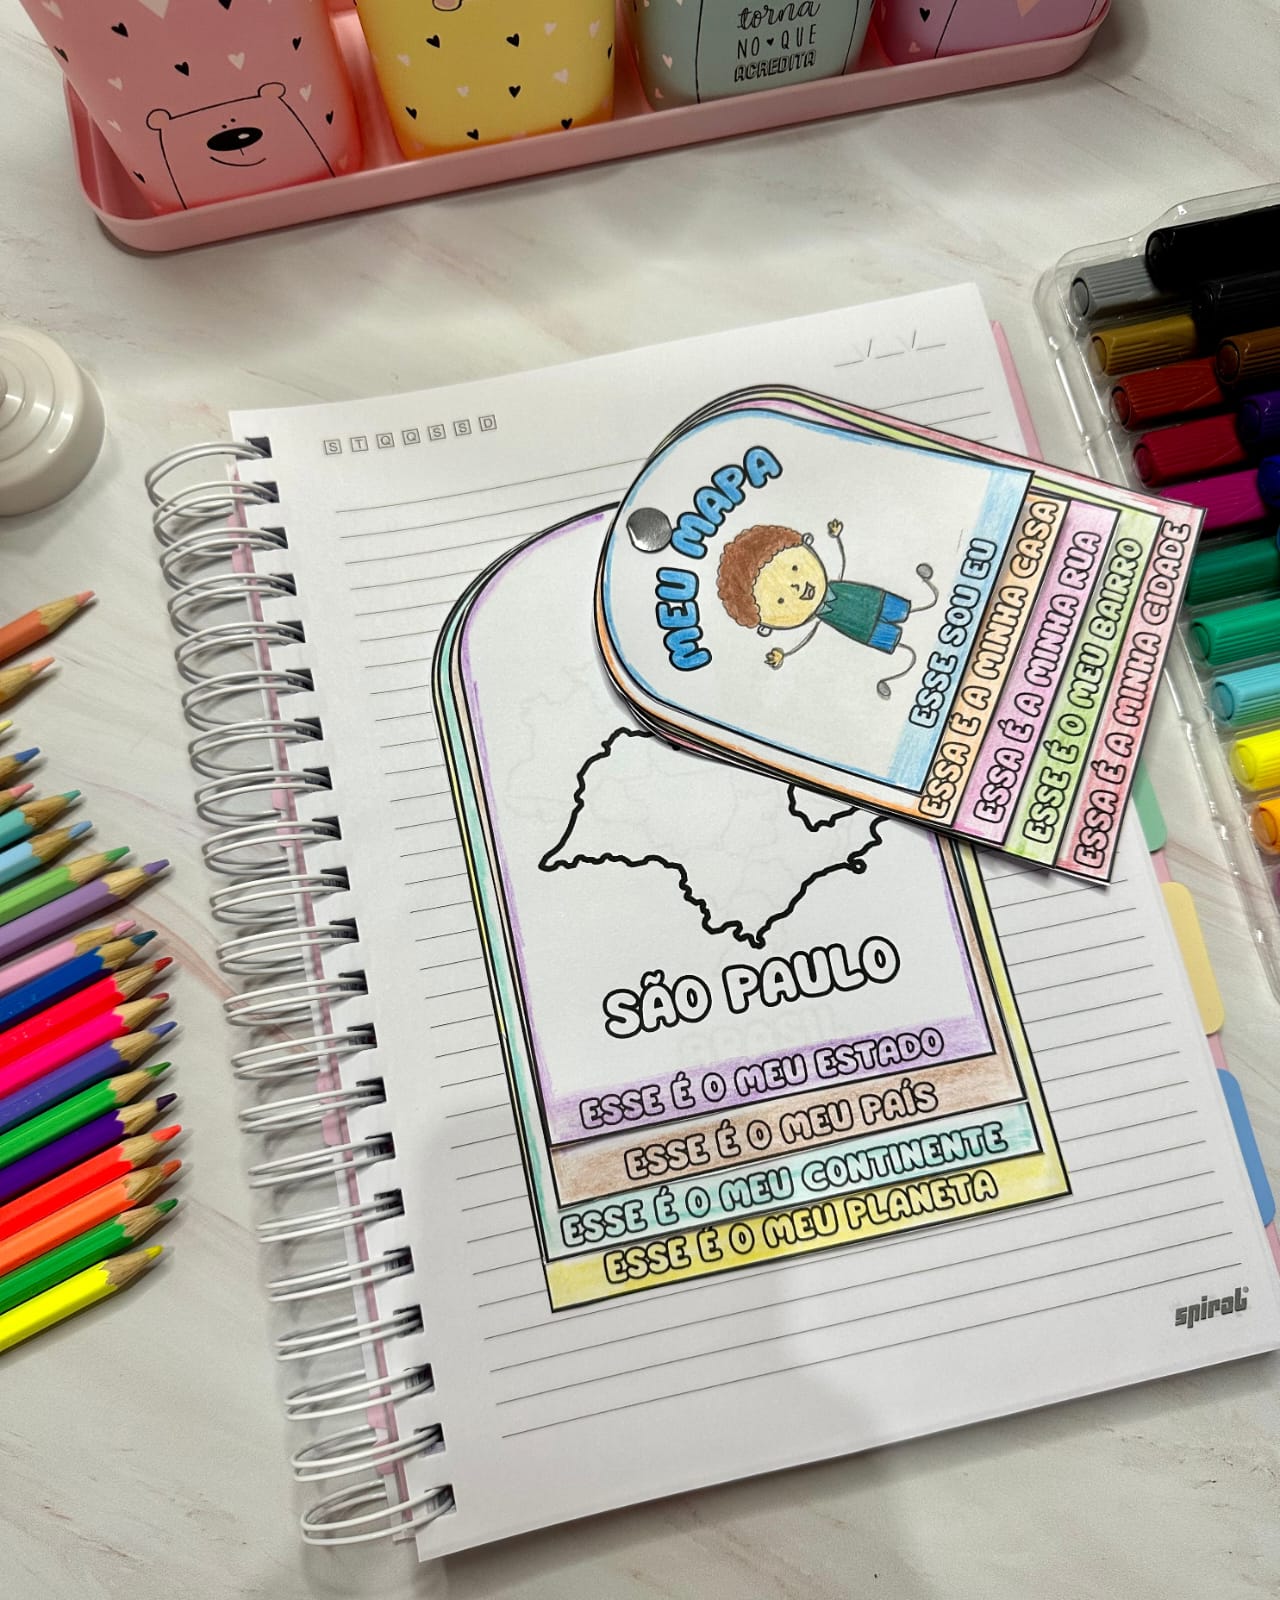 torna
NO♥QUE
ACREDITA
__/__/__
S T Q Q S S D
MEU MAPA
ESSE SOU EU
ESSA É A MINHA CASA
ESSA É A MINHA RUA
ESSE É O MEU BAIRRO
ESSA É A MINHA CIDADE
SÃO PAULO
ESSE É O MEU ESTADO
ESSE É O MEU PAÍS
ESSE É O MEU CONTINENTE
ESSE É O MEU PLANETA
spiral